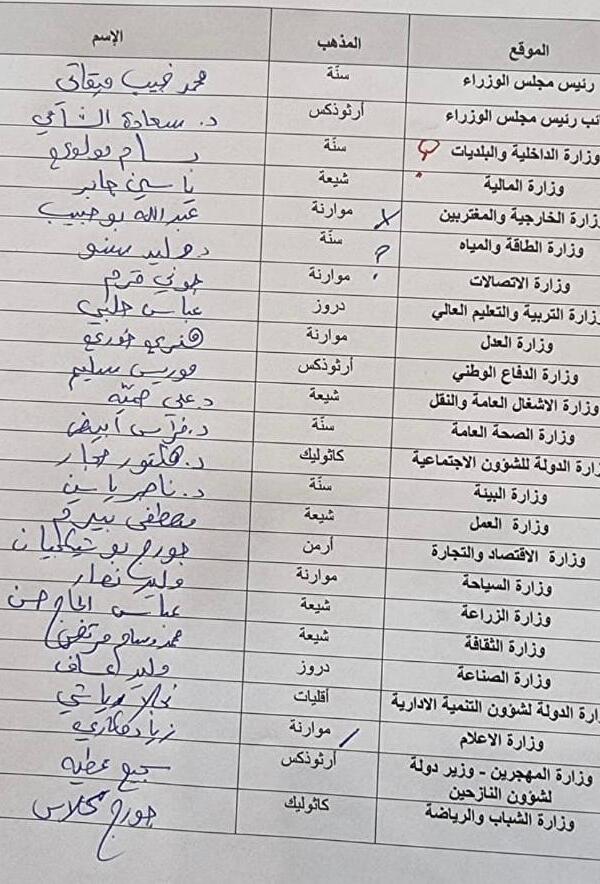 الموقع المذهب الإسم
رئيس مجلس الوزراء سنّة محمد نجيب ميقاتي
ئب رئيس مجلس الوزراء أرثوذكس د. سعادة الشامي
وزارة الداخلية والبلديات سنّة بسام مولوي
وزارة المالية شيعة ياسين جابر
زارة الخارجية والمغتربين موارنة عبدالله بوحبيب
وزارة الطاقة والمياه سنّة د. وليد سنو
وزارة الاتصالات موارنة جوني قرم
زارة التربية والتعليم العالي دروز عباس حلبي
وزارة العدل موارنة هنري خوري
وزارة الدفاع الوطني أرثوذكس موريس سليم
زارة الاشغال العامة والنقل شيعة د. علي حميّه
وزارة الصحة العامة سنّة د. فراس أبيض
زارة الدولة للشؤون الاجتماعية كاثوليك د. هكتور حجار
وزارة البيئة سنّة د. ناصر ياسين
وزارة العمل شيعة مصطفى بيرم
وزارة الاقتصاد والتجارة أرمن جورج بوشكيان
وزارة السياحة موارنة وليد نصار
وزارة الزراعة شيعة عباس الحاج حسن
وزارة الثقافة شيعة محمد وسام مرتضى
وزارة الصناعة دروز وليد عساف
ارة الدولة لشؤون التنمية الادارية أقليات نجلا رياشي
وزارة الاعلام موارنة زياد مكاري
وزارة المهجرين - وزير دولة أرثوذكس سجيع عطيه
لشؤون النازحين
وزارة الشباب والرياضة كاثوليك جورج كلاس